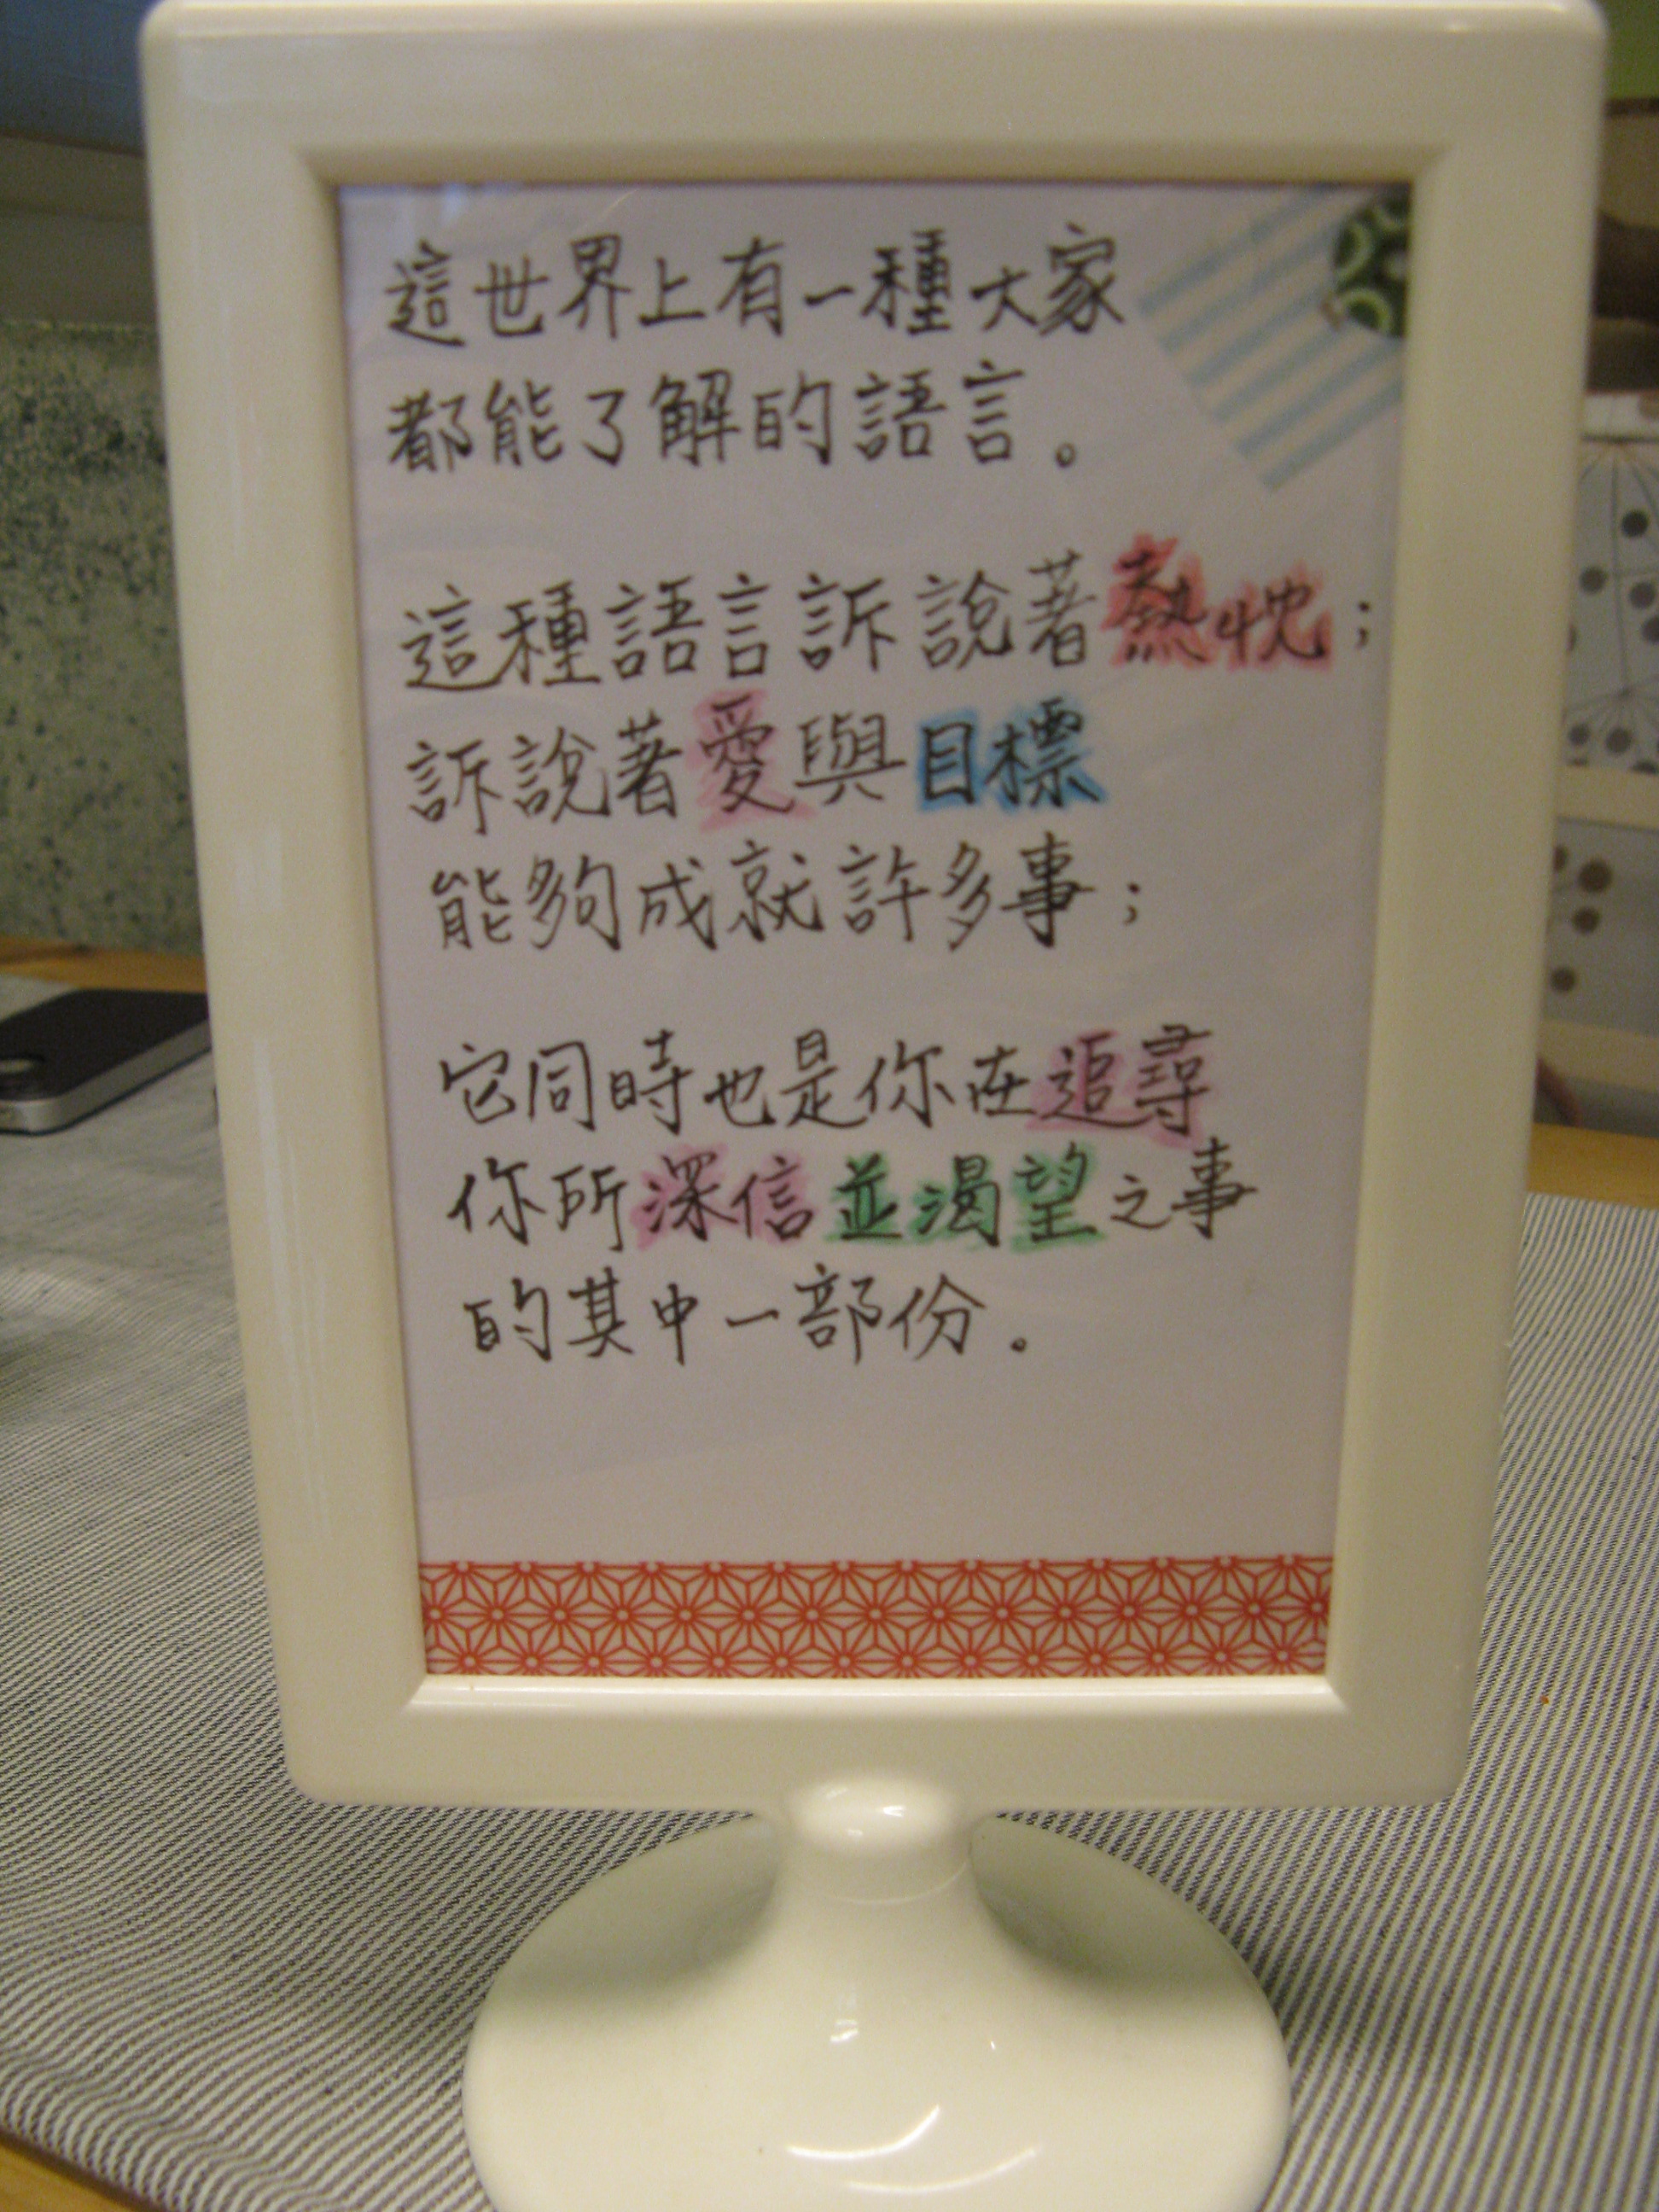 這世界上有一種大家
都能了解的語言。
這種語言訴說著熱忱；
訴說著愛與目標
能夠成就許多事；
它同時也是你在追尋
你所深信並渴望之事
的其中一部份。